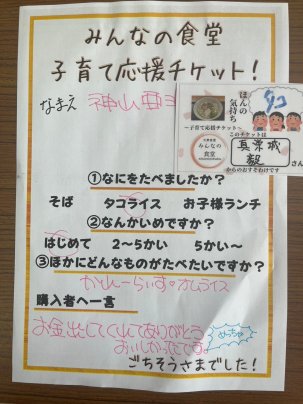 みんなの食堂
子育て応援チケット!
なまえ 神山
ほんの
気持ち
〜子育て応援チケット〜
みんなの
食堂
このチケットは
真栗城
毅 さん
からのおすそわけです
①なにをたべましたか?
そば タコライス お子様ランチ
②なんかいめですか?
はじめて 2〜5かい 5かい〜
③ほかにどんなものがたべたいですか?
かれーらいす オムライス
購入者へ一言
お金出してくれてありがとう
おいしかったです。
めっちゃ
ごちそうさまでした!